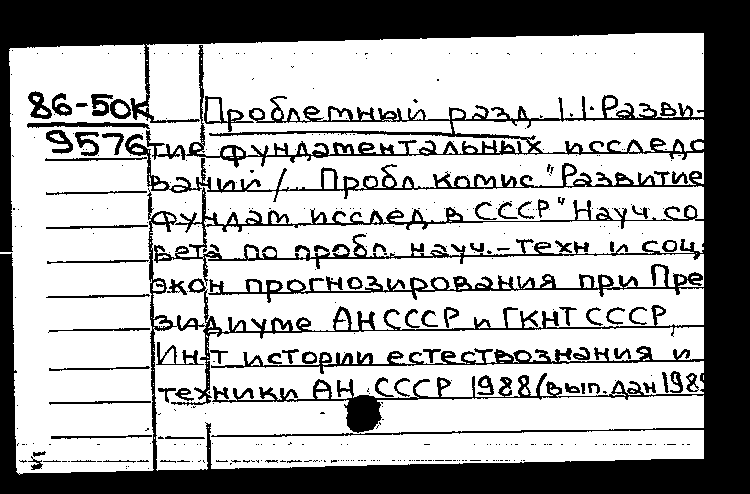 86-50К Проблемный разд. 1.1. Разви-
9576 тие фундаментальных исследо
ваний / .. Пробл. комис "Развитие
фундам. исслед. в СССР" Науч. со
вета по пробл. науч.-техн и соц.
экон прогнозирования при Пре
зидиуме АН СССР и ГКНТ СССР,
Ин-т истории естествознания и
техники АН СССР 1988 (вып. дан 1989